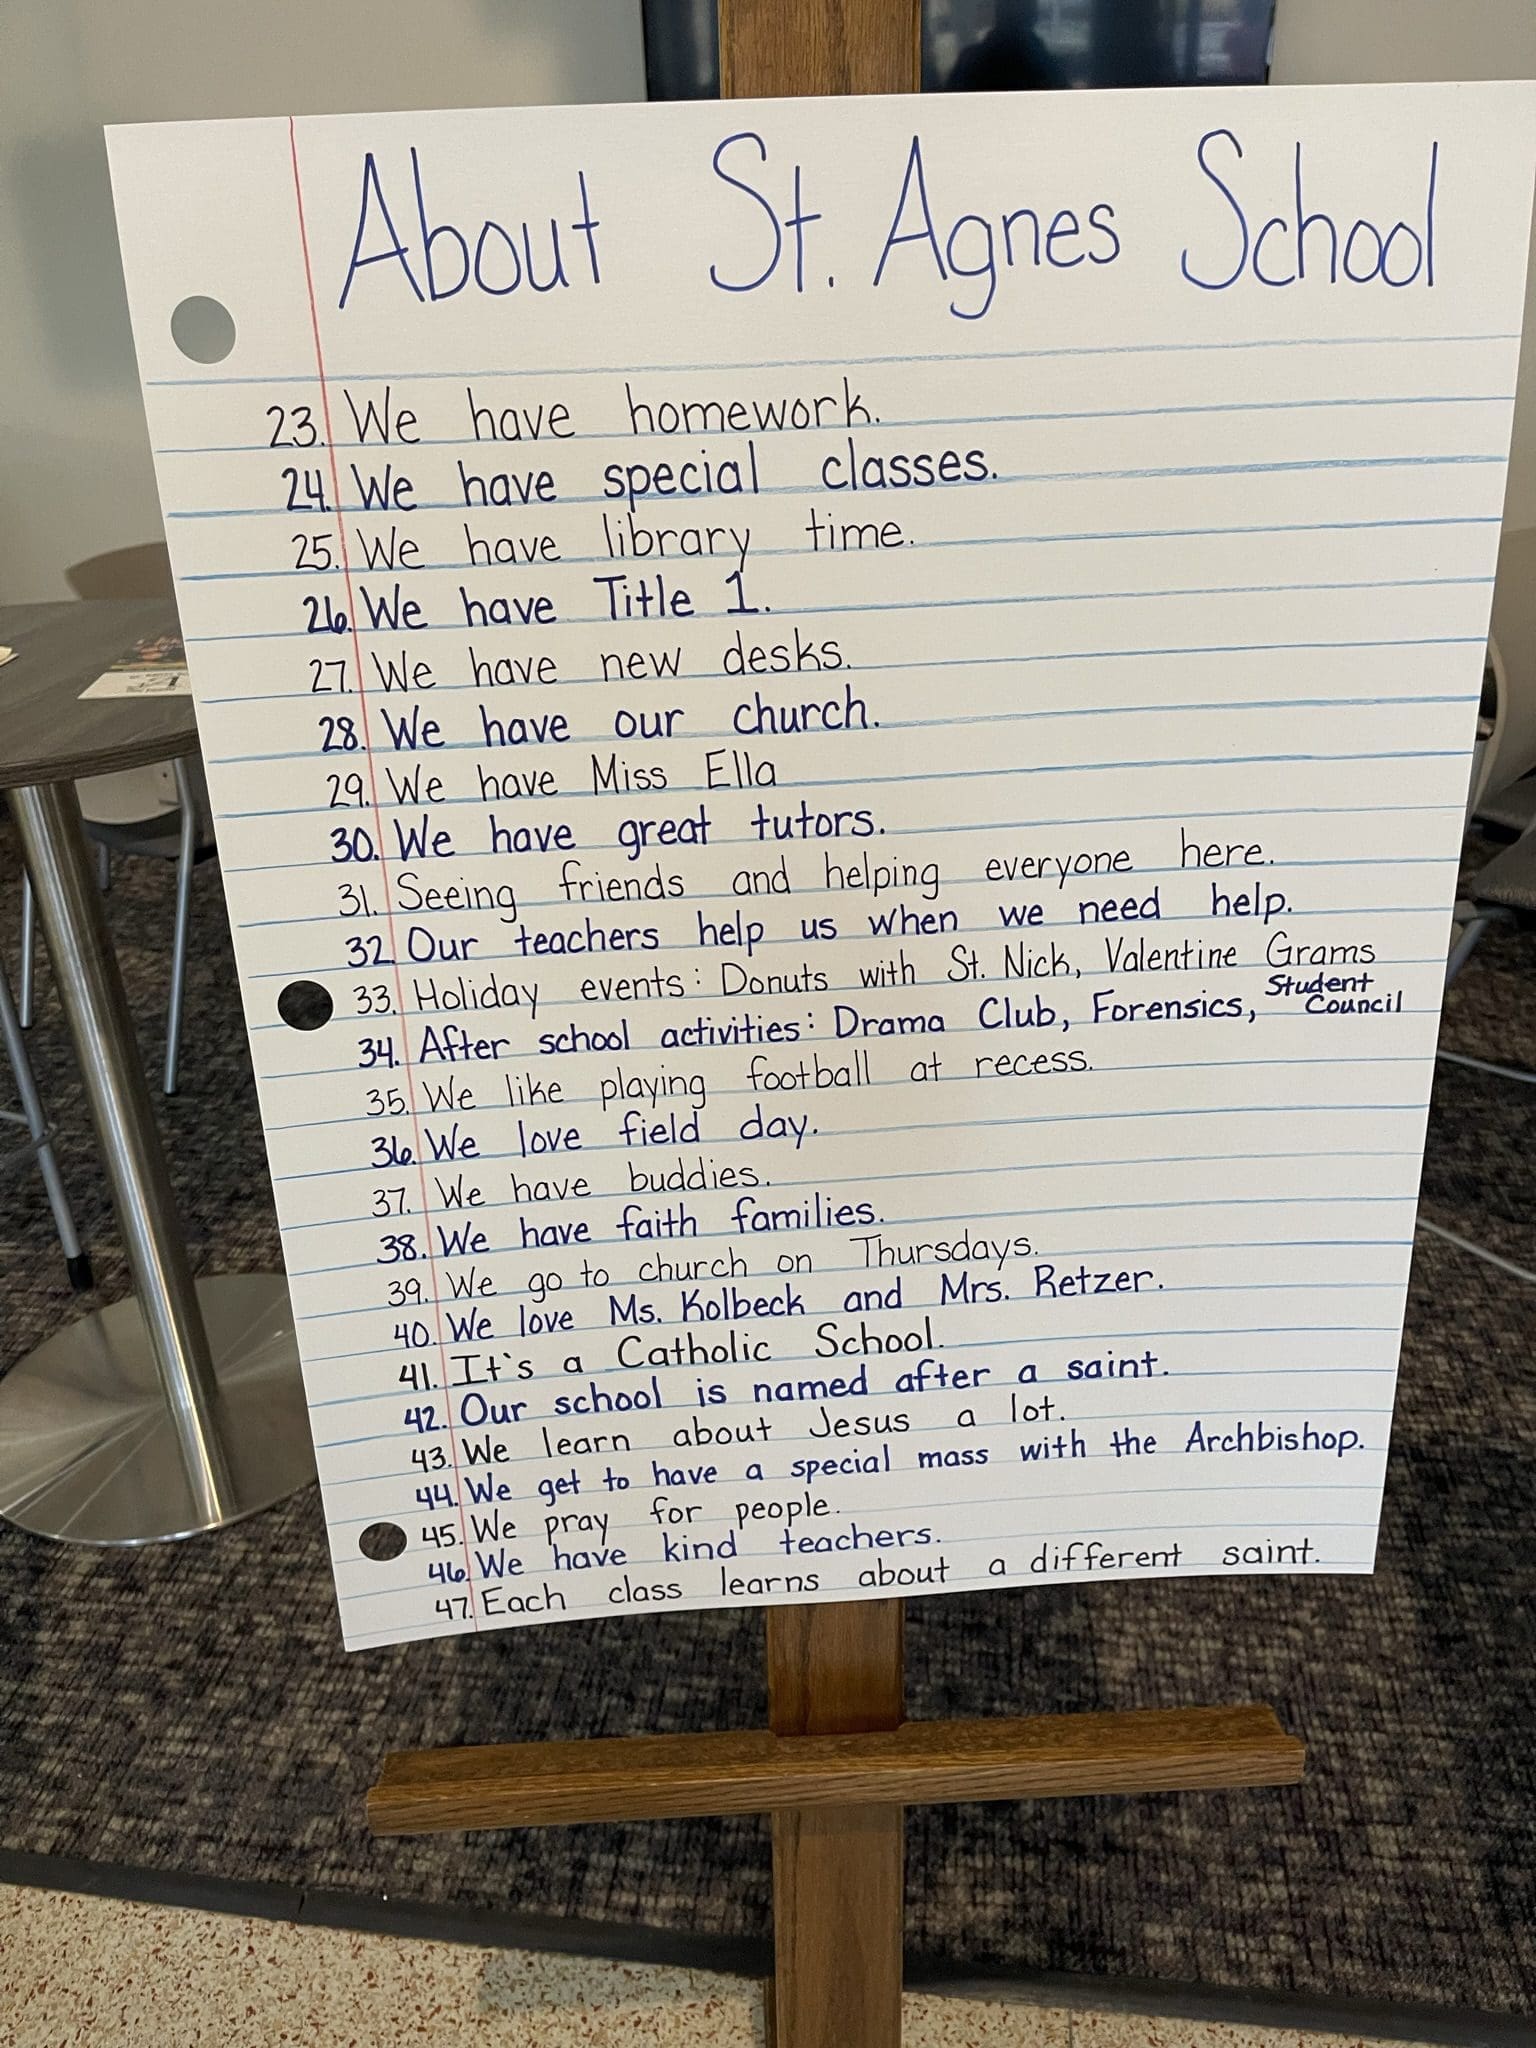 About St. Agnes School
23. We have homework.
24. We have special classes.
25. We have library time.
26. We have Title 1.
27. We have new desks.
28. We have our church.
29. We have Miss Ella
30. We have great tutors.
31. Seeing friends and helping everyone here.
32. Our teachers help us when we need help.
33. Holiday events: Donuts with St. Nick, Valentine Grams
34. After school activities: Drama Club, Forensics, Student Council
35. We like playing football at recess.
36. We love field day.
37. We have buddies.
38. We have faith families.
39. We go to church on Thursdays.
40. We love Ms. Kolbeck and Mrs. Retzer.
41. It's a Catholic School.
42. Our school is named after a saint.
43. We learn about Jesus a lot.
44. We get to have a special mass with the Archbishop.
45. We pray for people.
46. We have kind teachers.
47. Each class learns about a different saint.